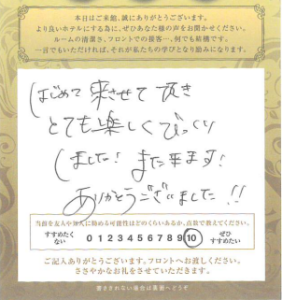 本日はご来館、誠にありがとうございます。
より良いホテルにする為に、ぜひあなた様の声をお聞かせください。
ルームの清潔さ、フロントでの接客…、何でも結構です。
一言でもいただければ、それが私たちの学びとなり励みになります。
はじめて来させて頂き
とても楽しくびっくり
しました! また来ます!
ありがとうございました!!
当館を友人や知人に勧める可能性はどのくらいあるか、点数で教えてください。
すすめたくない 0 1 2 3 4 5 6 7 8 9 10 ぜひすすめたい
ご記入ありがとうございます。フロントへお渡しください。
ささやかなお礼をさせていただきます。
書ききれない場合は裏面へどうぞ